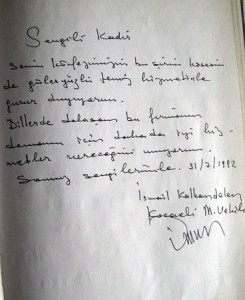 Sevgili Kadir
Senin körfezimizin bu şirin köşesin
de güleryüzlü temiz hizmetinle
gurur duyuyorum.
Dillerde dolaşan bu firmanın
devamı için dahada iyi hiz-
metler vereceğini umuyorum.
Sonsuz sevgilerimle. 31/7/1992
İsmail Kalkandelen
Kocaeli M. Vekili